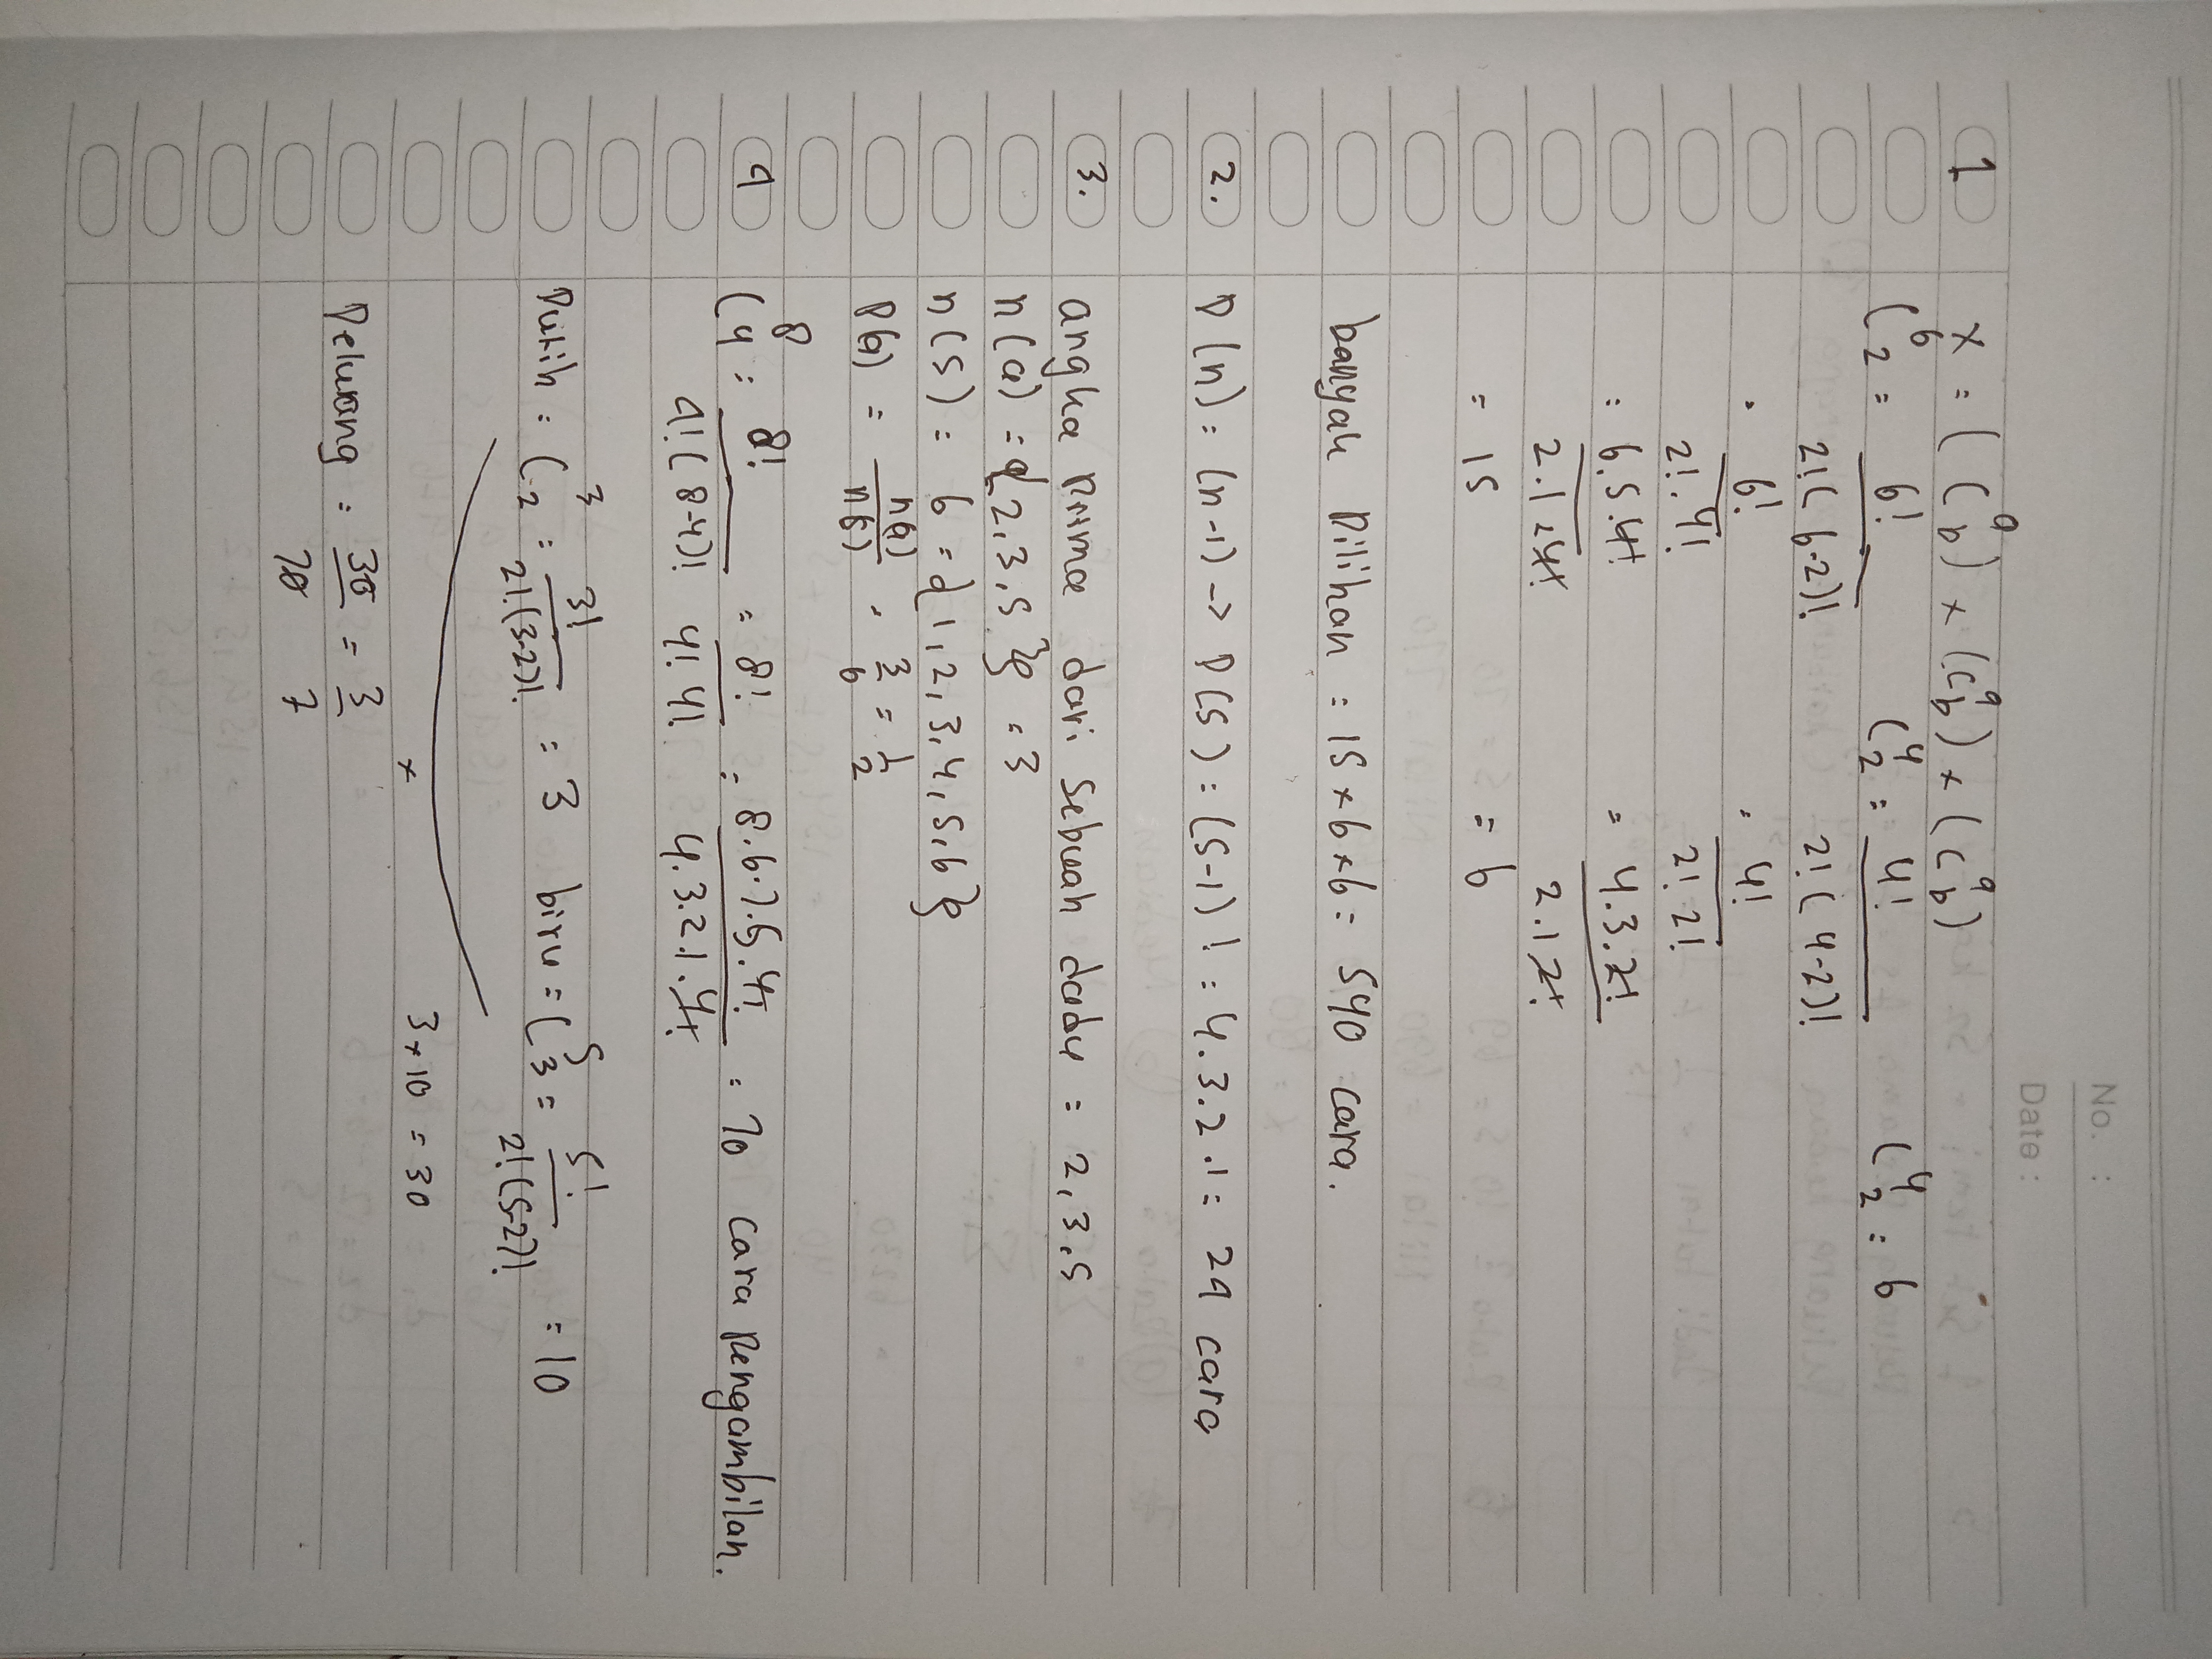 No. :
Date :
1 x = ( C a b ) x ( C a b ) x ( C a b )
C 6 2 = 6! / 2!(6-2)! C 4 2 = 4! / 2!(4-2)! C 4 2 = 6
= 6! / 2!.4! = 4! / 2! 2!
= 6.5.4! / 2.1.4! = 4.3.2! / 2.1 2!
= 15 = 6
banyak Pilihan = 15 x 6 x 6 = 540 cara.
2. P(n) = (n-1) -> P(5) = (5-1)! = 4.3.2.1 = 24 cara
3. angka Prima dari Sebuah dadu = 2,3,5
n(a) = {2,3,5} = 3
n(S) = 6 = {1,2,3,4,5,6}
P(a) = n(a) / n(S) = 3/6 = 1/2
4 C 8 4 = 8! / 4!(8-4)! = 8! / 4! 4! = 8.6.7.5.4! / 4.3.2.1.4! = 70 cara Pengambilan.
Putih = C 3 2 = 3! / 2!.(3-2)!. = 3 biru = C 5 3 = 5! / 2!(5-2)! = 10
x 3 x 10 = 30
Peluang = 30/70 = 3/7